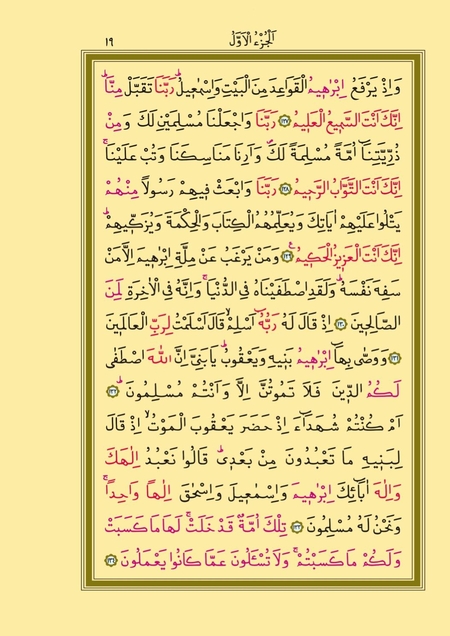 اَلْجُزْءُ الْاَوَّلُ ١٩
وَاِذْ يَرْفَعُ اِبْرٰه۪يمُ الْقَوَاعِدَ مِنَ الْبَيْتِ وَاِسْمٰع۪يلُۜ رَبَّنَا تَقَبَّلْ مِنَّاۜ
اِنَّكَ اَنْتَ السَّم۪يعُ الْعَل۪يمُ ﴿١٢٧﴾ رَبَّنَا وَاجْعَلْنَا مُسْلِمَيْنِ لَكَ وَمِنْ
ذُرِّيَّتِنَٓا اُمَّةً مُسْلِمَةً لَكَۖ وَاَرِنَا مَنَاسِكَنَا وَتُبْ عَلَيْنَاۚ
اِنَّكَ اَنْتَ التَّوَّابُ الرَّح۪يمُ ﴿١٢٨﴾ رَبَّنَا وَابْعَثْ ف۪يهِمْ رَسُولًا مِنْهُمْ
يَتْلُوا عَلَيْهِمْ اٰيَاتِكَ وَيُعَلِّمُهُمُ الْكِتَابَ وَالْحِكْمَةَ وَيُزَكّ۪يهِمْۜ
اِنَّكَ اَنْتَ الْعَز۪يزُ الْحَك۪يمُ۟ ﴿١٢٩﴾ وَمَنْ يَرْغَبُ عَنْ مِلَّةِ اِبْرٰه۪يمَ اِلَّا مَنْ
سَفِهَ نَفْسَهُۜ وَلَقَدِ اصْطَفَيْنَاهُ فِي الدُّنْيَاۚ وَاِنَّهُ فِي الْاٰخِرَةِ لَمِنَ
الصَّالِح۪ينَ ﴿١٣٠﴾ اِذْ قَالَ لَهُ رَبُّهُٓ اَسْلِمْۙ قَالَ اَسْلَمْتُ لِرَبِّ الْعَالَم۪ينَ
﴿١٣١﴾ وَوَصّٰى بِهَٓا اِبْرٰه۪يمُ بَن۪يهِ وَيَعْقُوبُۜ يَا بَنِيَّ اِنَّ اللّٰهَ اصْطَفٰى
لَكُمُ الدّ۪ينَ فَلَا تَمُوتُنَّ اِلَّا وَاَنْتُمْ مُسْلِمُونَۜ ﴿١٣٢﴾
اَمْ كُنْتُمْ شُهَدَٓاءَ اِذْ حَضَرَ يَعْقُوبَ الْمَوْتُۙ اِذْ قَالَ
لِبَن۪يهِ مَا تَعْبُدُونَ مِنْ بَعْد۪يۜ قَالُوا نَعْبُدُ اِلٰهَكَ
وَاِلٰهَ اٰبَٓائِكَ اِبْرٰه۪يمَ وَاِسْمٰع۪يلَ وَاِسْحٰقَ اِلٰهًا وَاحِدًاۚ
وَنَحْنُ لَهُ مُسْلِمُونَ ﴿١٣٣﴾ تِلْكَ اُمَّةٌ قَدْ خَلَتْۚ لَهَا مَا كَسَبَتْ
وَلَكُمْ مَا كَسَبْتُمْۚ وَلَا تُسْـَٔلُونَ عَمَّا كَانُوا يَعْمَلُونَ ﴿١٣٤﴾